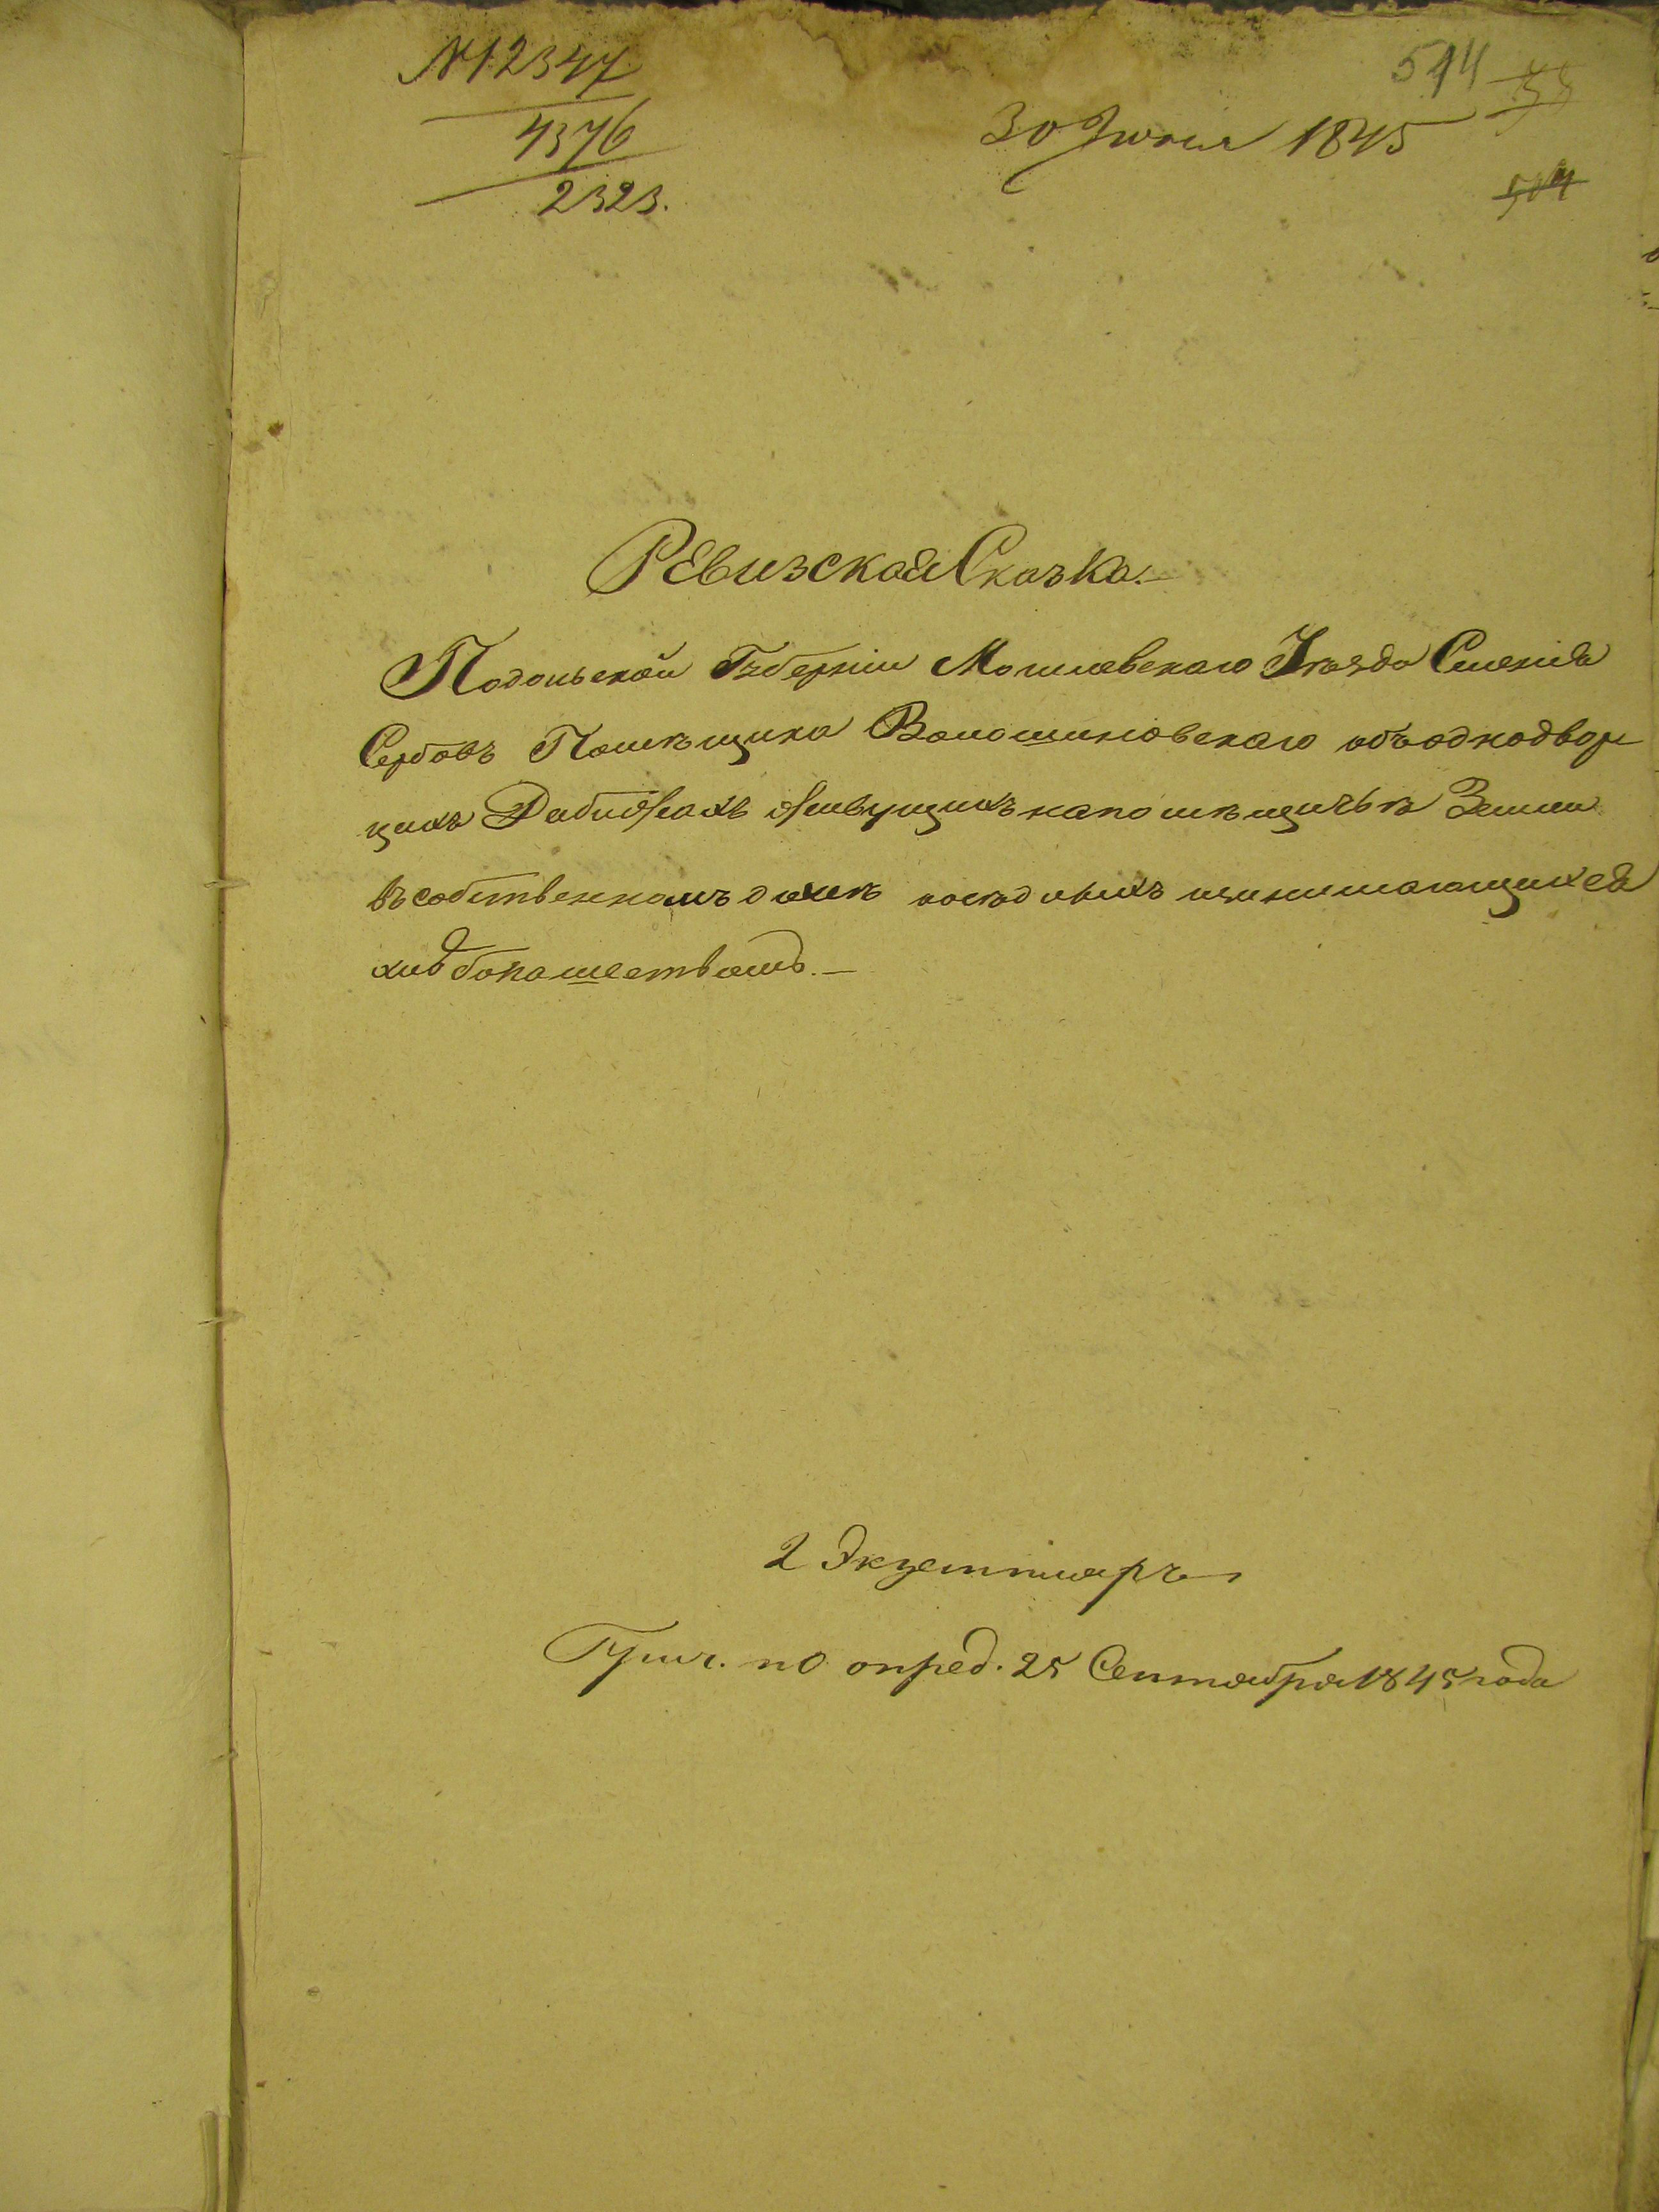 №12347
4376
2323.
514
30 Июня 1845
504
Ревизская Сказка.—
Подольской Губернии Могилевскаго Уѣзда Селенія
Сербовъ Помѣщика Волошиновскаго объ однодвор
цахъ живущихъ на помѣщичьѣ Земли
въ собственномъ домѣ осѣдлыхъ
хлѣбопашествомъ.—
2 Экземпляръ
по опред. 25 Сентября 1845 года